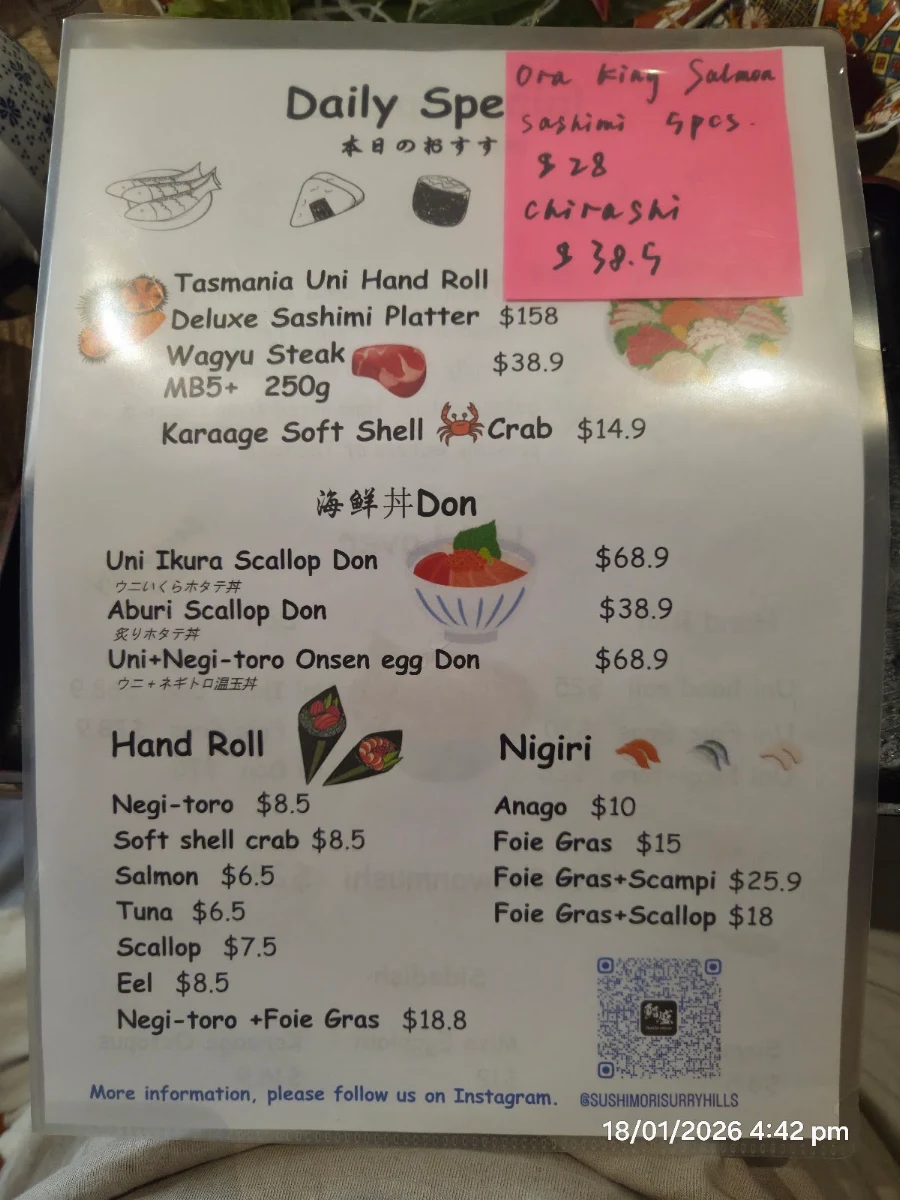 Ora King Salmon
sashimi 5pcs.
$28
chirashi
$38.5
Daily Spe
本日のおすす
Tasmania Uni Hand Roll
Deluxe Sashimi Platter $158
Wagyu Steak
MB5+ 250g $38.9
Karaage Soft Shell Crab $14.9
海鮮丼Don
Uni Ikura Scallop Don $68.9
ウニいくらホタテ丼
Aburi Scallop Don $38.9
炙りホタテ丼
Uni+Negi-toro Onsen egg Don $68.9
ウニ+ネギトロ温玉丼
Hand Roll
Negi-toro $8.5
Soft shell crab $8.5
Salmon $6.5
Tuna $6.5
Scallop $7.5
Eel $8.5
Negi-toro +Foie Gras $18.8
Nigiri
Anago $10
Foie Gras $15
Foie Gras+Scampi $25.9
Foie Gras+Scallop $18
More information, please follow us on Instagram. @SUSHIMORISURRYHILLS
18/01/2026 4:42 pm